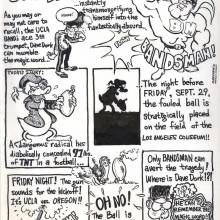 As you may or
may not care to
recall, the UCLA
BAND'S ace 3rd
trumpet, Dave Dork
can mumble
the magic word...
...instantly
transmogrifying
himself into the
fantastically absurd...
BANDSMAN!
TODAY'S STORY:
A dangerous radical has
diabolically concealed 97 lbs.
of TNT in a football...
...The night before
FRIDAY, SEPT. 29,
the fouled ball is
strategically placed
on the field of the
LOS ANGELES COLISEUM!!
FRIDAY NIGHT! The gun
sounds for the kickoff!
It's UCLA vs. OREGON!!
OH NO!
The Ball is
Only BANDSMAN can
avert the tragedy!
Where is Dave Dork!?